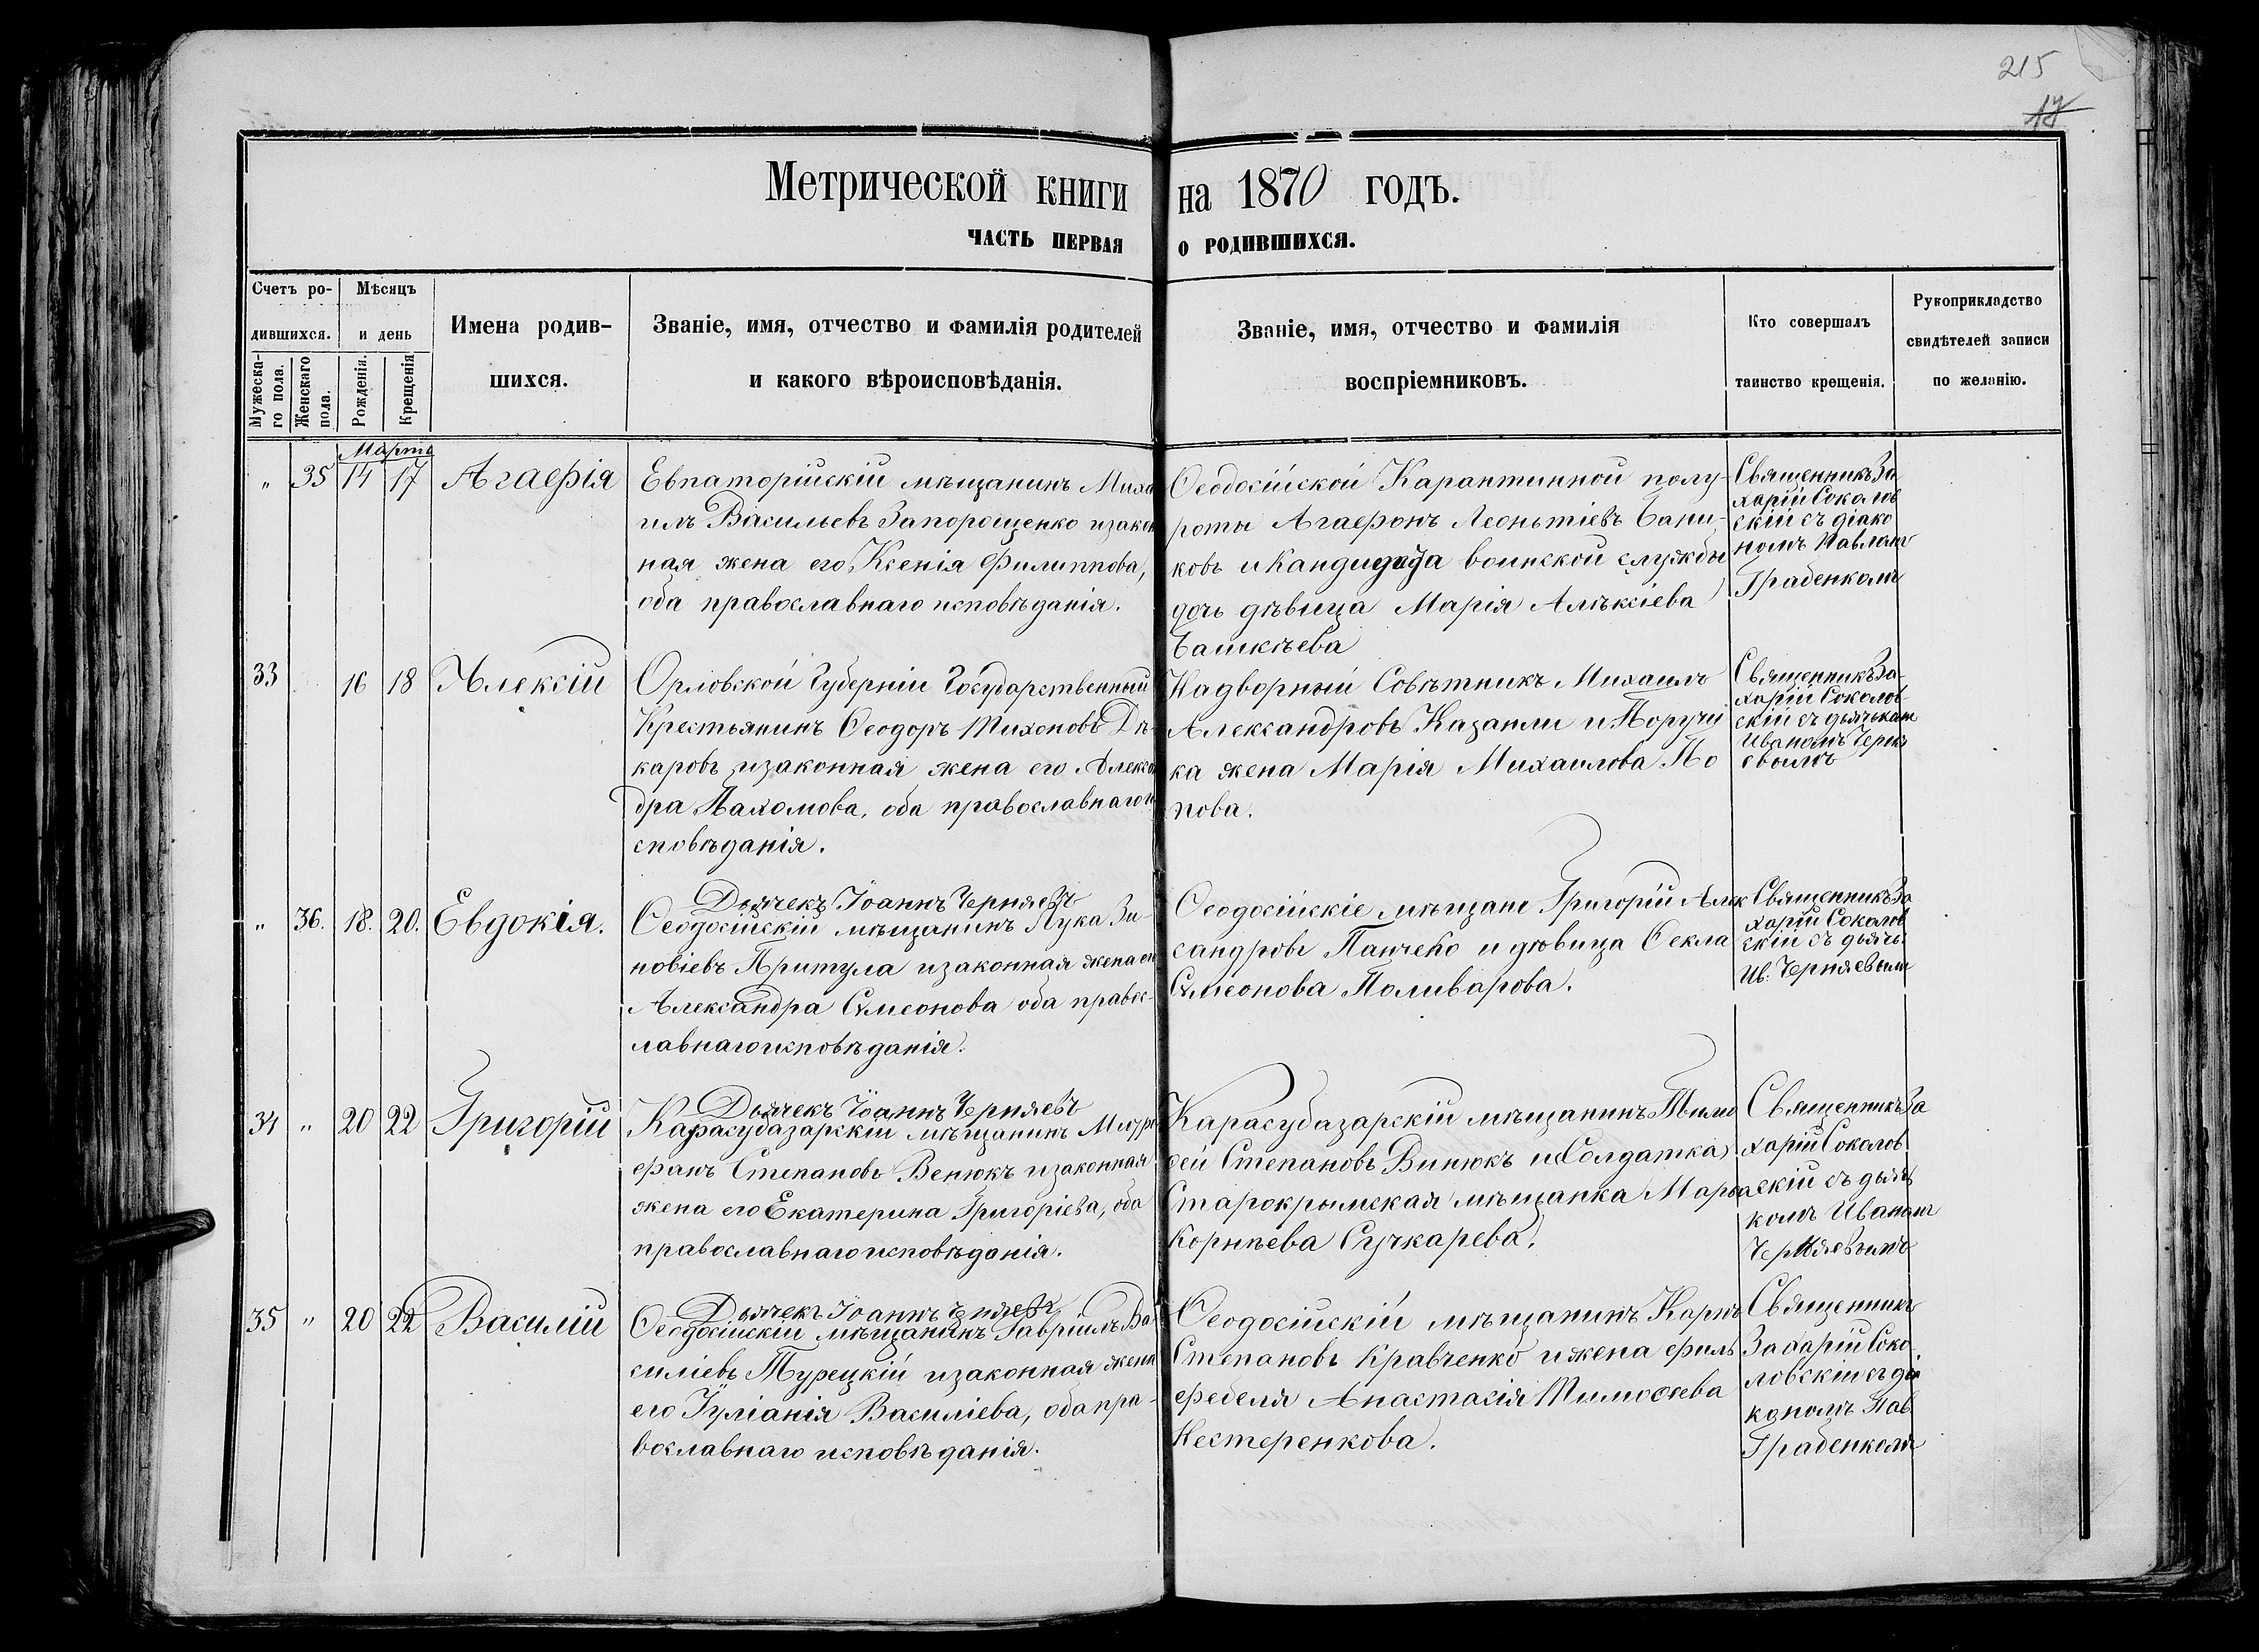 215
17
Метрической книги на 1870 годъ.
ЧАСТЬ ПЕРВАЯ О РОДИВШИХСЯ.
Счетъ ро-
дившихся.
Мужеска-
го пола.
Женскаго
пола.
Мѣсяцъ
и день
Рожденія.
Крещенія
Имена родив-
шихся.
Званіе, имя, отчество и фамилія родителей
и какого вѣроисповѣданія.
Званіе, имя, отчество и фамилія
воспріемниковъ.
Кто совершалъ
таинство крещенія.
Рукоприкладство
свидѣтелей записи
по желанію.
Мартъ
" 35 14 17 Агафія
Евпаторійскій мѣщанинъ Миха
илъ Васильевъ Запорощенко и закон
ная жена его Ксенія Филиппова,
оба православнаго исповѣданія.
Ѳеодосійской Карантинной полу-
роты Агафонъ Леонтіевъ Бани-
ковъ и Кандидата воинской службы
дочь дѣвица Марія Алексіева
Башкѣева
Священникъ За
харій Соколов
скій съ діако
номъ Павломъ
Грабенкомъ
33 16 18 Алексій
Орловской Губерніи Государственный
Крестьянинъ Ѳеодоръ Тихоновъ Дѣ-
каровъ и законная жена его Алексан
дра Пахомова, оба православнаго и
сповѣданія.
Надворный Совѣтникъ Михаилъ
Александровъ Казанли и Поручи
ка жена Марія Михаилова По
пова.
Священникъ За-
харій Соколов
скій съ дьячкомъ
Иваномъ Черня
евымъ
Дьячекъ Іоаннъ Черняевъ
" 36. 18. 20. Евдокія.
Ѳеодосійскій мѣщанинъ Лука Зи-
новіевъ Притула и законная жена его
Александра Симеонова оба правос-
лавнаго исповѣданія.
Ѳеодосійскіе мѣщане Григорій Алек
сандровъ Панчеко и дѣвица Ѳекла
Симеонова Поливарова.
Священникъ За
харій Соколов
скій съ дьячк:
Ив: Черняевымъ
Дьячекъ Іоаннъ Черняевъ
34 " 20 22 Григорій
Карасубазарскій мѣщанинъ Митро
фанъ Степановъ Венюкъ и законная
жена его Екатерина Григоріева, оба
православнаго исповѣданія.
Карасубазарскій мѣщанинъ Тимо
ѳей Степановъ Винюкъ и Солдатка
Старокрымская мѣщанка Марѳа
Корнѣева Сучкарева.
Священникъ За
харій Соколов
скій съ дьяч
комъ Иваномъ
Черняевымъ
Дьячекъ Іоаннъ Черняевъ
35 " 20 22 Василій
Ѳеодосійскій мѣщанинъ Гавріилъ Ва
силіевъ Турецкій и законная жена
его Іуліанія Василіева, оба пра-
вославнаго исповѣданія.
Ѳеодосійскій мѣщанинъ Карпъ
Степановъ Кравченко и жена фильд
фебеля Анастасія Тимоѳеева
Нестеренкова.
Священникъ
Захарій Соко
ловскій съ діа
кономъ Пав.
Грабенкомъ